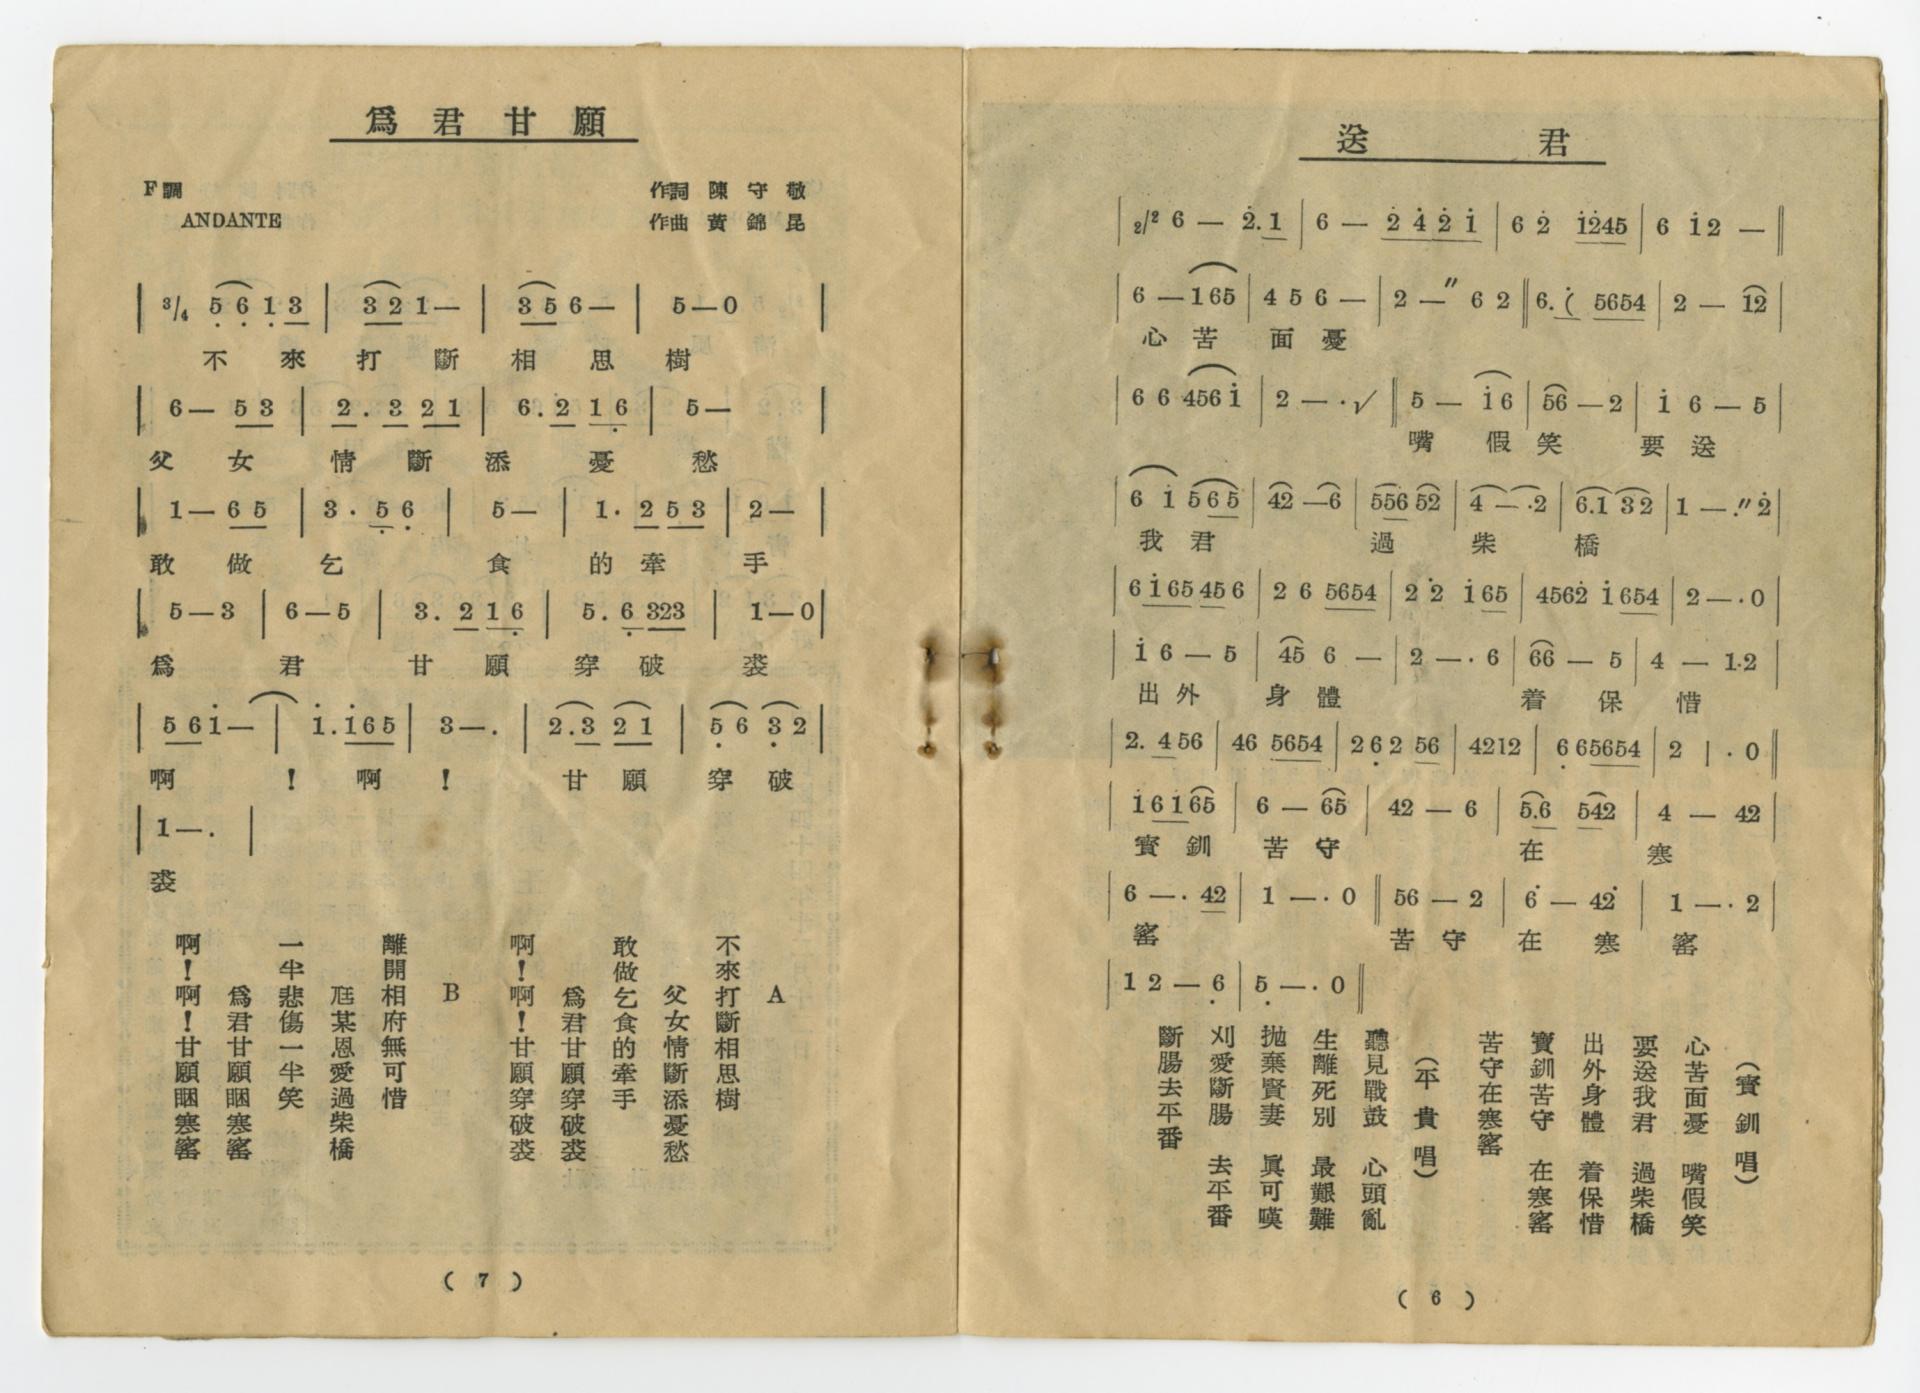 送君
2/2 6 — 2̇. 1 | 6 — 2̇ 4̇ 2̇ 1̇ | 6 2̇ 1̇245 | 6 1̇ 2 — ‖
6 — 165 | 4 5 6 — | 2 —〃 6 2 ‖ 5654 | 2 — 12 |
心苦 面憂
6 6 4561̇ | 2 — · √ ‖ 5 — 1̇ 6 | 56 — 2 | 1̇ 6 — 5 |
嘴 假笑 要送
6 1̇ 5 6 5 | 42 — 6 | 556 52 | 4 — ·2 | 6.1 32 | 1 — .〃2̇ |
我君 過 柴 橋
6 1̇ 65 45 6 | 2 6 5654 | 2 2̇ 1̇ 65 | 4562̇ 1̇ 654 | 2 — · 0 |
1̇ 6 — 5 | 45 6 — | 2 — · 6 | 66 — 5 | 4 — 1·2 |
出外 身體 着 保 惜
2. 4 56 | 46 5654 | 2 6̣ 2 56 | 4212 | 6̣ 65654 | 2 | · 0 ‖
1̇ 6 1̇ 65 | 6 — 65 | 42 — 6 | 5.6 542 | 4 — 42 |
寶釧 苦守 在 寒
6 — · 42 | 1 — · 0 ‖ 56 — 2 | 6̇ — 42̇ | 1 — · 2 |
窰 苦守 在 寒 窰
1 2 — 6̣ | 5̣ — · 0 ‖
(寶釧唱)
心苦面憂 嘴假笑
要送我君 過柴橋
出外身體 着保惜
寶釧苦守 在寒窰
苦守在寒窰
(平貴唱)
聽見戰鼓 心頭亂
生離死別 最艱難
拋棄賢妻 眞可嘆
刈愛斷腸 去平番
斷腸去平番
( 6 )
爲君甘願
F調
ANDANTE
作詞 陳守敬
作曲 黃錦昆
3/4 5̣ 6̣ 1̣ 3 | 3 2 1 — | 3 5 6 — | 5 — 0 |
不來打斷相思樹
6 — 5 3 | 2 . 3 2 1 | 6 . 2 1 6̣ | 5 — |
父女情斷添憂愁
1 — 6 5 | 3 · 5̣ 6̣ | 5 — | 1 · 2 5 3 | 2 — |
敢做乞食的牽手
5 — 3 | 6 — 5 | 3 . 2 1 6̣ | 5 . 6̣ 323 | 1 — 0 |
爲君甘願穿破裘
5 6 1̇ — | 1̇ . 1̇ 6 5 | 3 — . | 2 . 3 2 1 | 5̣ 6 3̣ 2 |
啊!啊!甘願穿破
1 — . |
裘
A
不來打斷相思樹
父女情斷添憂愁
敢做乞食的牽手
爲君甘願穿破裘
啊!啊!甘願穿破裘
B
離開相府無可惜
尪某恩愛過柴橋
一半悲傷一半笑
爲君甘願睏寒窰
啊!啊!甘願睏寒窰
( 7 )